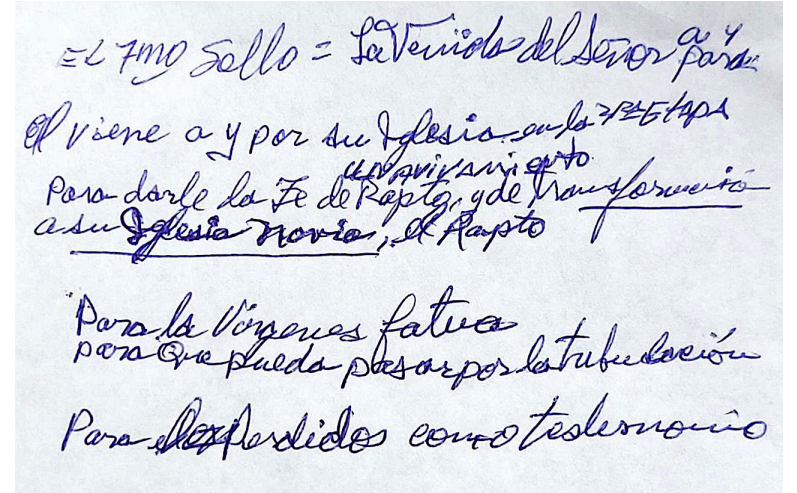 EL 7MO Sello = La Venida del Señor a y para
El viene a y por su Iglesia en la 3RA Etapa
un avivamiento
Para darle la Fe de Rapto, y de transformació
a su Iglesia novia, el Rapto
Para la Vírgenes fatua
para Que pueda pasar por la tribulación
Para los Perdidos como testimonio